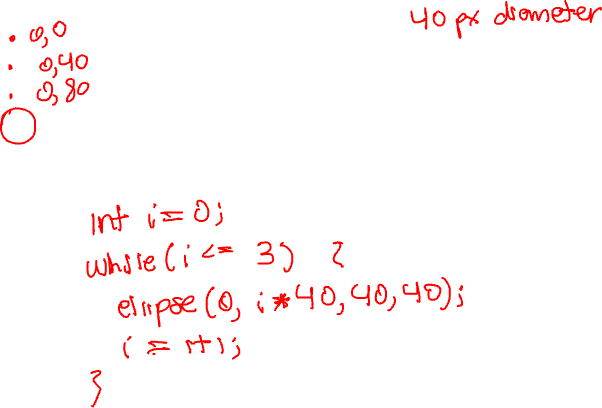 40 px diameter
• 0,0
• 0,40
• 0,80
int i = 0;
while (i <= 3) {
ellipse (0, i * 40, 40, 40);
i = i+1;
}